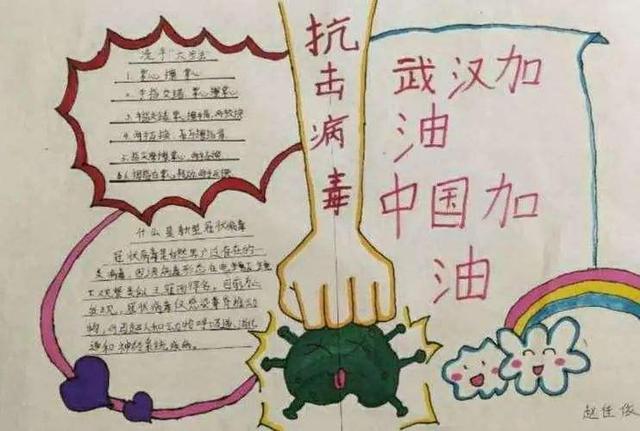 洗手"六步法"
1. 掌心擦掌心
2. 手指交错,掌心擦掌心
3. 手指交错,掌心擦手背,两手互换
4. 两手互握,互擦指背
5. 指尖摩擦掌心,两手互换
6. 拇指在掌心转动,两手互换
什么是新型冠状病毒
冠状病毒是自然界广泛存在的一
类病毒,因该病毒形态在电镜下
观察类似王冠而得名。目前为止
发现,冠状病毒仅感染脊椎动
物,可引起人和动物呼吸道、消化
道和神经系统疾病。
抗击病毒
武汉加
油
中国加
油
赵佳俊